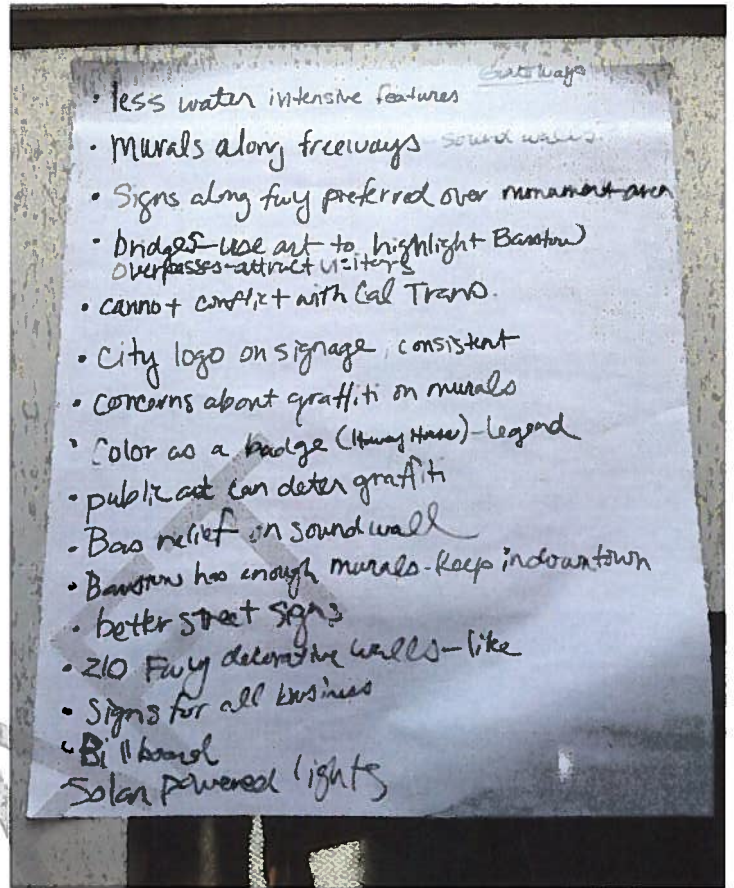 Gateways
• less water intensive features
• Murals along freeways sound walls
• Signs along fwy preferred over monument area
• bridges-use art to highlight Barstow
overpasses-attract visitors
• cannot conflict with Cal Trans.
• City logo on signage, consistent
• concerns about graffiti on murals
• Color as a badge (Harvey House)-legend
• public art can deter graffiti
• Bas relief in soundwall
• Barstow has enough murals-keep in downtown
• better street signs
• 210 Fwy decorative walls-like
• Signs for all business
• Billboard
Solar powered lights